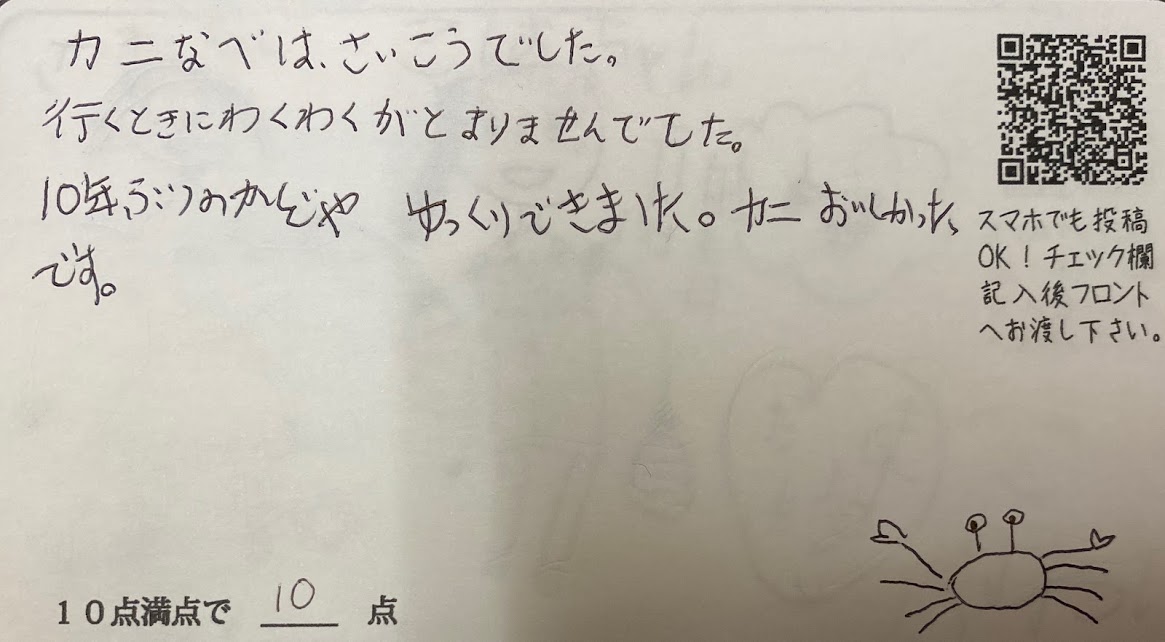 カニなべは、さいこうでした。
行くときにわくわくがとまりませんでした。
10年ぶりのかぞや ゆっくりできました。カニ おいしかった
です。
スマホでも投稿
OK！チェック欄
記入後フロント
へお渡し下さい。
10点満点で 10 点